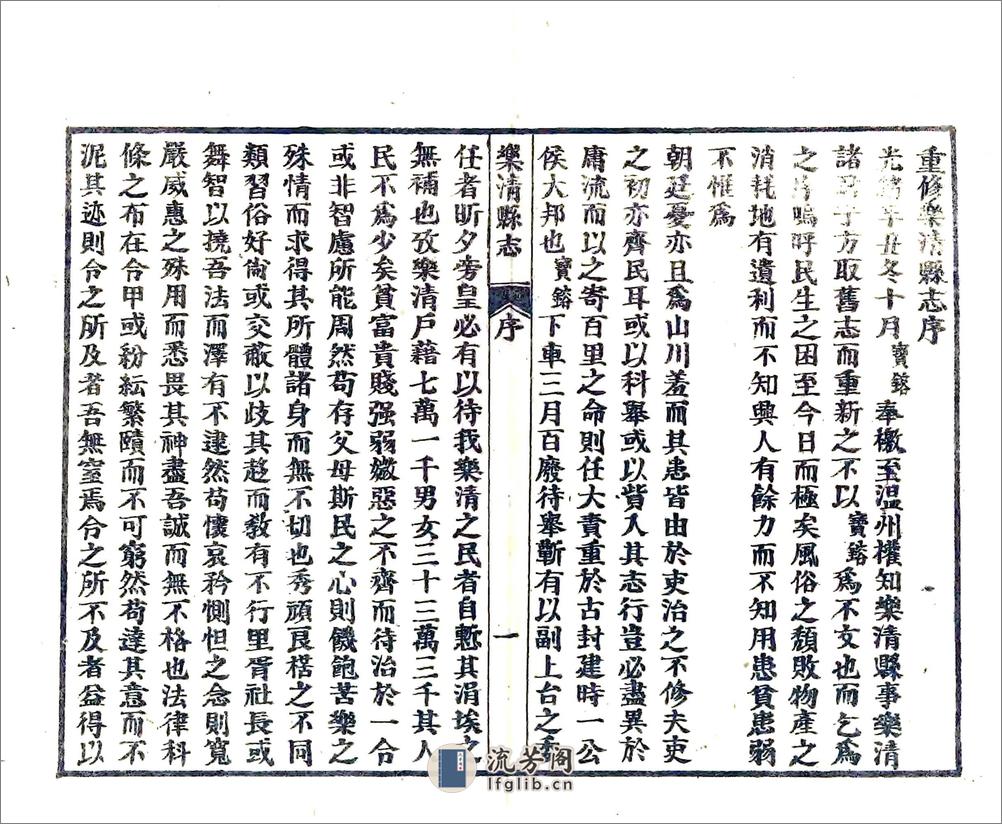 重修樂清縣志序
光緒辛丑冬十月寶鎔奉檄至温州權知樂清縣事樂清
諸君子方取舊志而重新之不以寶鎔爲不文也而乞爲
之序嗚呼民生之困至今日而極矣風俗之頽敗物產之
消耗地有遺利而不知興人有餘力而不知用患貧患弱
不惟爲
朝廷憂亦且爲山川羞而其患皆由於吏治之不修夫吏
之初亦齊民耳或以科舉或以貲入其志行豈必盡異於
庸流而以之寄百里之命則任大責重於古封建時一公
侯大邦也寶鎔下車三月百廢待舉蘄有以副上台之委
樂清縣志
序
一
任者昕夕旁皇必有以待我樂清之民者自慙其涓埃之
無補也攷樂清戶藉七萬一千男女三十三萬三千其人
民不爲少矣貧富貴賤强弱媺惡之不齊而待治於一令
或非智慮所能周然苟存父母斯民之心則饑飽苦樂之
殊情而求得其所體諸身而無不切也秀頑良楛之不同
類習俗好尙或交蔽以歧其趍而敎有不行里胥社長或
舞智以撓吾法而澤有不逮然苟懷哀矜惻怛之念則寬
嚴威惠之殊用而悉畏其神盡吾誠而無不格也法律科
條之布在令甲或紛紜繁賾而不可窮然苟達其意而不
泥其迹則令之所及者吾無窒焉令之所不及者益得以
流芳阁
lfglib.cn